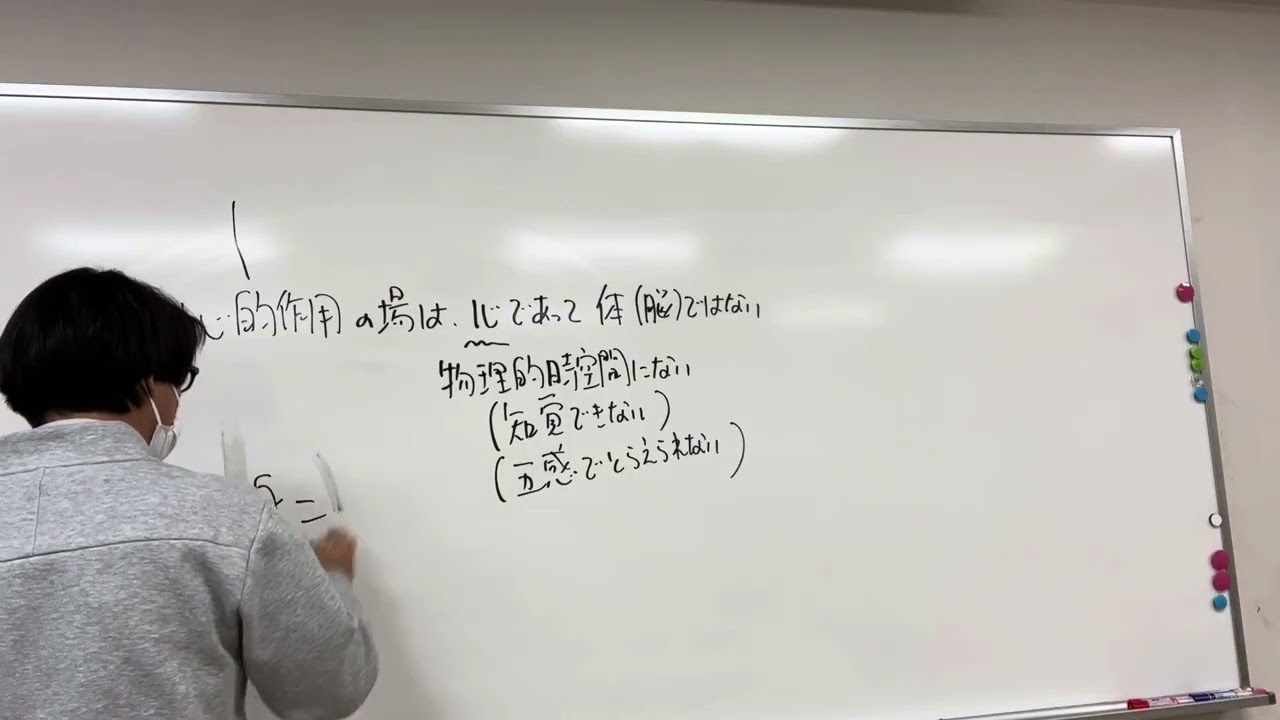 心的作用の場は、心であって体(脳)ではない
物理的時空間にない
(知覚できない)
(五感でとらえられない)
=